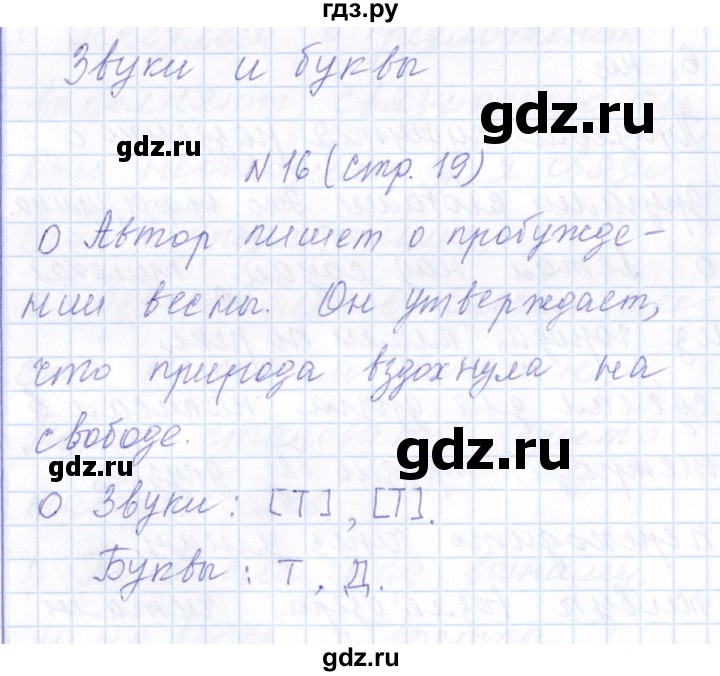 гдз.ру
Звуки и буквы
gdz.ru
gdz.ru
N 16 (стр. 19)
О Автор пишет о пробужде-
нии весны. Он утверждает,
что природа вздохнула на
свободе.
gdz.ru
gdz.ru
О Звуки: [Т], [Т].
Буквы: Т, Д.
gdz.ru